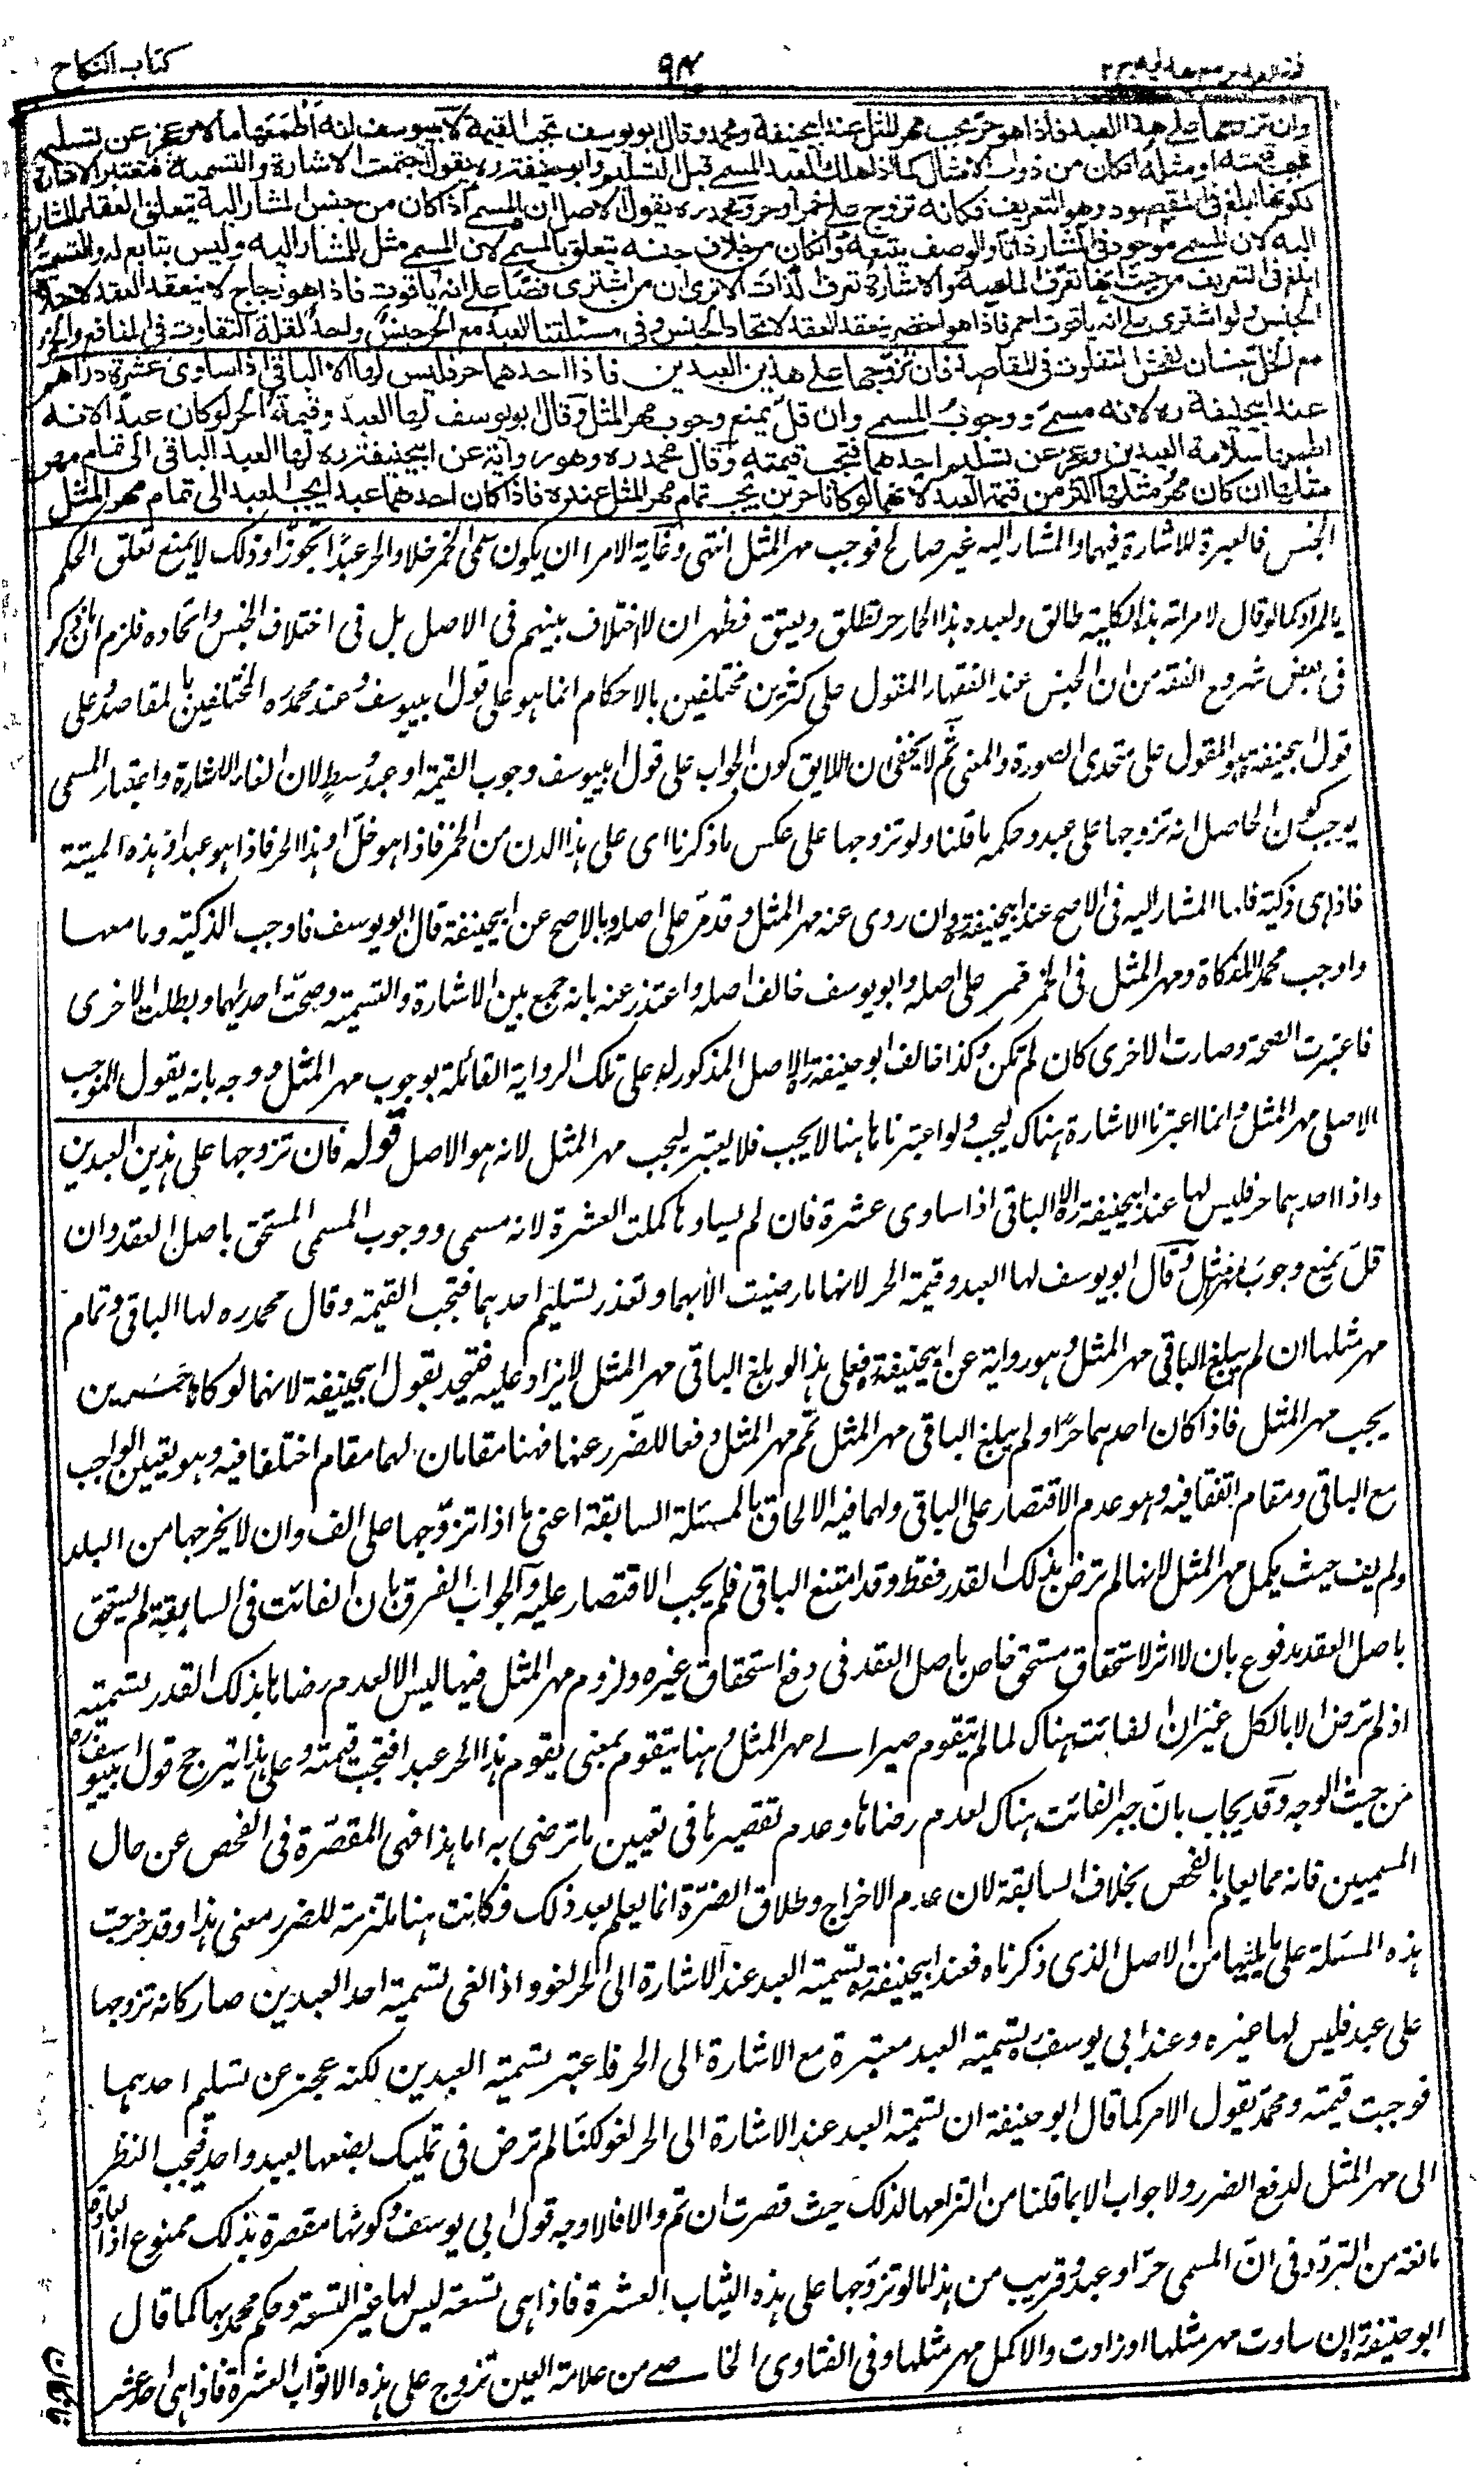 كتاب النكاح
٩٤
وان تزوجها على هذا العبد فاذا هو حر يجب مهر المثل عند ابيحنيفة ومحمد وقال ابو يوسف تجب القيمة لابييوسف انه اطمعها مالا وعجز عن تسليمه
فتجب قيمته او مثله ان كان من ذوات الامثال كما اذا هلك العبد المسمى قبل التسليم وابو حنيفة ره يقول اجتمعت الاشارة والتسمية فتعتبر الاشارة
لكونها ابلغ فى المقصود وهو التعريف فكانه تزوج على خمر او حر ومحمد ره يقول الاصل ان المسمى اذا كان من جنس المشار اليه يتعلق العقد بالمشار
اليه لان المسمى موجود فى المشار ذاتا والوصف يتبعه وان كان من خلاف جنسه يتعلق بالمسمى لان المسمى مثل للمشار اليه وليس بتابع له والتسمية
ابلغ فى التعريف من حيث انها تعرف الماهية والاشارة تعرف الذات الا ترى ان من اشترى فصا على انه ياقوت فاذا هو زجاج لا ينعقد العقد لاختلاف
الجنس ولو اشترى على انه ياقوت احمر فاذا هو اخضر ينعقد العقد لاتحاد الجنس وفى مسئلتنا العبد مع الحر جنس واحد لقلة التفاوت فى المنافع والخمر
مع الخل جنسان لفحش التفاوت فى المقاصد فان تزوجها على هذين العبدين فاذا احدهما حر فليس لها الا الباقى اذا ساوى عشرة دراهم
عند ابيحنيفة ره لانه مسمى ووجوب المسمى وان قل يمنع وجوب مهر المثل وقال ابو يوسف لها العبد وقيمة الحر لو كان عبدا لانه
اطمعها سلامة العبدين وعجز عن تسليم احدهما فتجب قيمته وقال محمد ره وهو رواية عن ابيحنيفة ره لها العبد الباقى الى تمام مهر
مثلها ان كان مهر مثلها اكثر من قيمة العبد لانهما لو كانا حرين يجب تمام مهر المثل عنده فاذا كان احدهما عبدا يجب العبد الى تمام مهر المثل
الجنس فالعبرة للاشارة فيهما والمشار اليه غير صالح فوجب مهر المثل انتهى وغاية الامر ان يكون سمى الخمر خلا والحر عبدا تجوزا وذلك لا يمنع تعلق الحكم
بالمراد كما لو قال لامرأته هذه الكلبة طالق ولعبده هذا الحمار حر تطلق ويعتق فظهر ان لا اختلاف بينهم فى الاصل بل فى اختلاف الجنس واتحاده فلزم ان ما ذكر
فى بعض شروح الفقه من ان الجنس عند الفقهاء المقول على كثيرين مختلفين بالاحكام انما هو على قول ابييوسف وعند محمد ره المختلفين بالمقاصد وعلى
قول ابيحنيفة هو المقول على متحدى الصورة والمعنى ثم لا يخفى ان اللايق كون الجواب على قول ابييوسف وجوب القيمة او عبد وسط لان الغاء الاشارة واعتبار المسمى
يوجب كون الحاصل انه تزوجها على عبد وحكمه ما قلنا ولو تزوجها على عكس ما ذكرنا اى على هذا الدن من الخمر فاذا هو خل او هذا الحر فاذا هو عبد او هذه الميتة
فاذا هى ذكية فلها المشار اليه فى الاصح عند ابيحنيفة وان روى عنه مهر المثل وقد مر على اصله وبالاصح عن ابيحنيفة قال ابو يوسف فاوجب الذكية وما معها
واوجب محمد المذكاة ومهر المثل فى الخمر فمر على اصله وابو يوسف خالف اصله واعتذر عنه بانه جمع بين الاشارة والتسمية وصحت احديهما وبطلت الاخرى
فاعتبرت الصحة وصارت الاخرى كان لم تكن وكذا خالف ابو حنيفة ره الاصل المذكور له على تلك الرواية القائلة بوجوب مهر المثل ووجه بانه يقول الموجب
الاصلى مهر المثل وانما اعتبرنا الاشارة هناك ليجب ولو اعتبرناها هنا لا يجب فلا يعتبر ليجب مهر المثل لانه هو الاصل قوله فان تزوجها على هذين العبدين
واذا احدهما حر فليس لها عند ابيحنيفة ره الا الباقى اذا ساوى عشرة فان لم يساوها كملت العشرة لانه مسمى ووجوب المسمى المستحق باصل العقد وان
قل يمنع وجوب مهر المثل وقال ابو يوسف لها العبد وقيمة الحر لانها ما رضيت الا بهما وتعذر تسليم احدهما فتجب القيمة وقال محمد ره لها الباقى وتمام
مهر مثلها ان لم يبلغ الباقى مهر المثل وهو رواية عن ابيحنيفة فعلى هذا لو بلغ الباقى مهر المثل لا يزاد عليه فيتحد بقول ابيحنيفة لانهما لو كانا حرين
يجب مهر المثل فاذا كان احدهما حرا ولم يبلغ الباقى مهر المثل تمم مهر المثل دفعا للضرر عنها فهنا مقامان لهما مقام اختلفا فيه وهو تعيين الواجب
مع الباقى ومقام اتفقا فيه وهو عدم الاقتصار على الباقى ولهما فيه الالحاق بالمسئلة السابقة اعنى ما اذا تزوجها على الف وان لا يخرجها من البلد
ولم يف حيث يكمل مهر المثل لانها لم ترض بذلك القدر فقط وقد امتنع الباقى فلم يجب الاقتصار عليه والجواب الفرق بان الفائت فى السابقة لم يستحق
باصل العقد مدفوع بان لا اثر لاستحقاق مستحق خاص باصل العقد فى دفع استحقاق غيره ولزوم مهر المثل فيها ليس الا لعدم رضاها بذلك القدر لتسميته
اذ لم ترض الا بالكل غير ان الفائت هناك لما لم يتقوم صير الى مهر المثل وهنا يتقوم بمعنى يقوم هذا الحر عبدا فتجب قيمته وعلى هذا يترجح قول ابييوسف ره
من حيث الوجه وقد يجاب بان جبر الفائت هناك لعدم رضاها وعدم تقصيرها فى تعيين ما ترضى به اما هذا فهى المقصرة فى الفحص عن حال
المسميين فانه مما يعلم بالفحص بخلاف السابقة لان عدم الاخراج وطلاق الضرة انما يعلم بعد ذلك فكانت هنا ملتزمة للضرر معنى هذا وقد خرجت
هذه المسئلة على ما يليها من الاصل الذى ذكرناه فعند ابيحنيفة تسمية العبد عند الاشارة الى الحر لغو واذا الغى تسمية احد العبدين صار كانه تزوجها
على عبد فليس لها غيره وعند ابى يوسف ره تسمية العبد معتبرة مع الاشارة الى الحر فاعتبر تسمية العبدين لكنه عجز عن تسليم احدهما
فوجبت قيمته ومحمد يقول الامر كما قال ابو حنيفة ان تسمية العبد عند الاشارة الى الحر لغو لكنها لم ترض فى تمليك بضعها بعبد واحد فيجب النظر
الى مهر المثل لدفع الضرر ولا جواب الا بما قلنا من التزامها لذلك حيث قصرت ان تم والا فالاوجه قول ابى يوسف وكونها مقصرة بذلك ممنوع اذا
مانعة من التردد فى ان المسمى حر او عبد وقريب من هذا ما لو تزوجها على هذه الثياب العشرة فاذا هى تسعة ليس لها غير التسعة وحكم محمد بها كما قال
ابو حنيفة ان ساوت مهر مثلها او زادت والا كمل مهر مثلها وفى الفتاوى الخاصى من علامة العين تزوج على هذه الاثواب العشرة فاذا هى احد عشر
فان كان